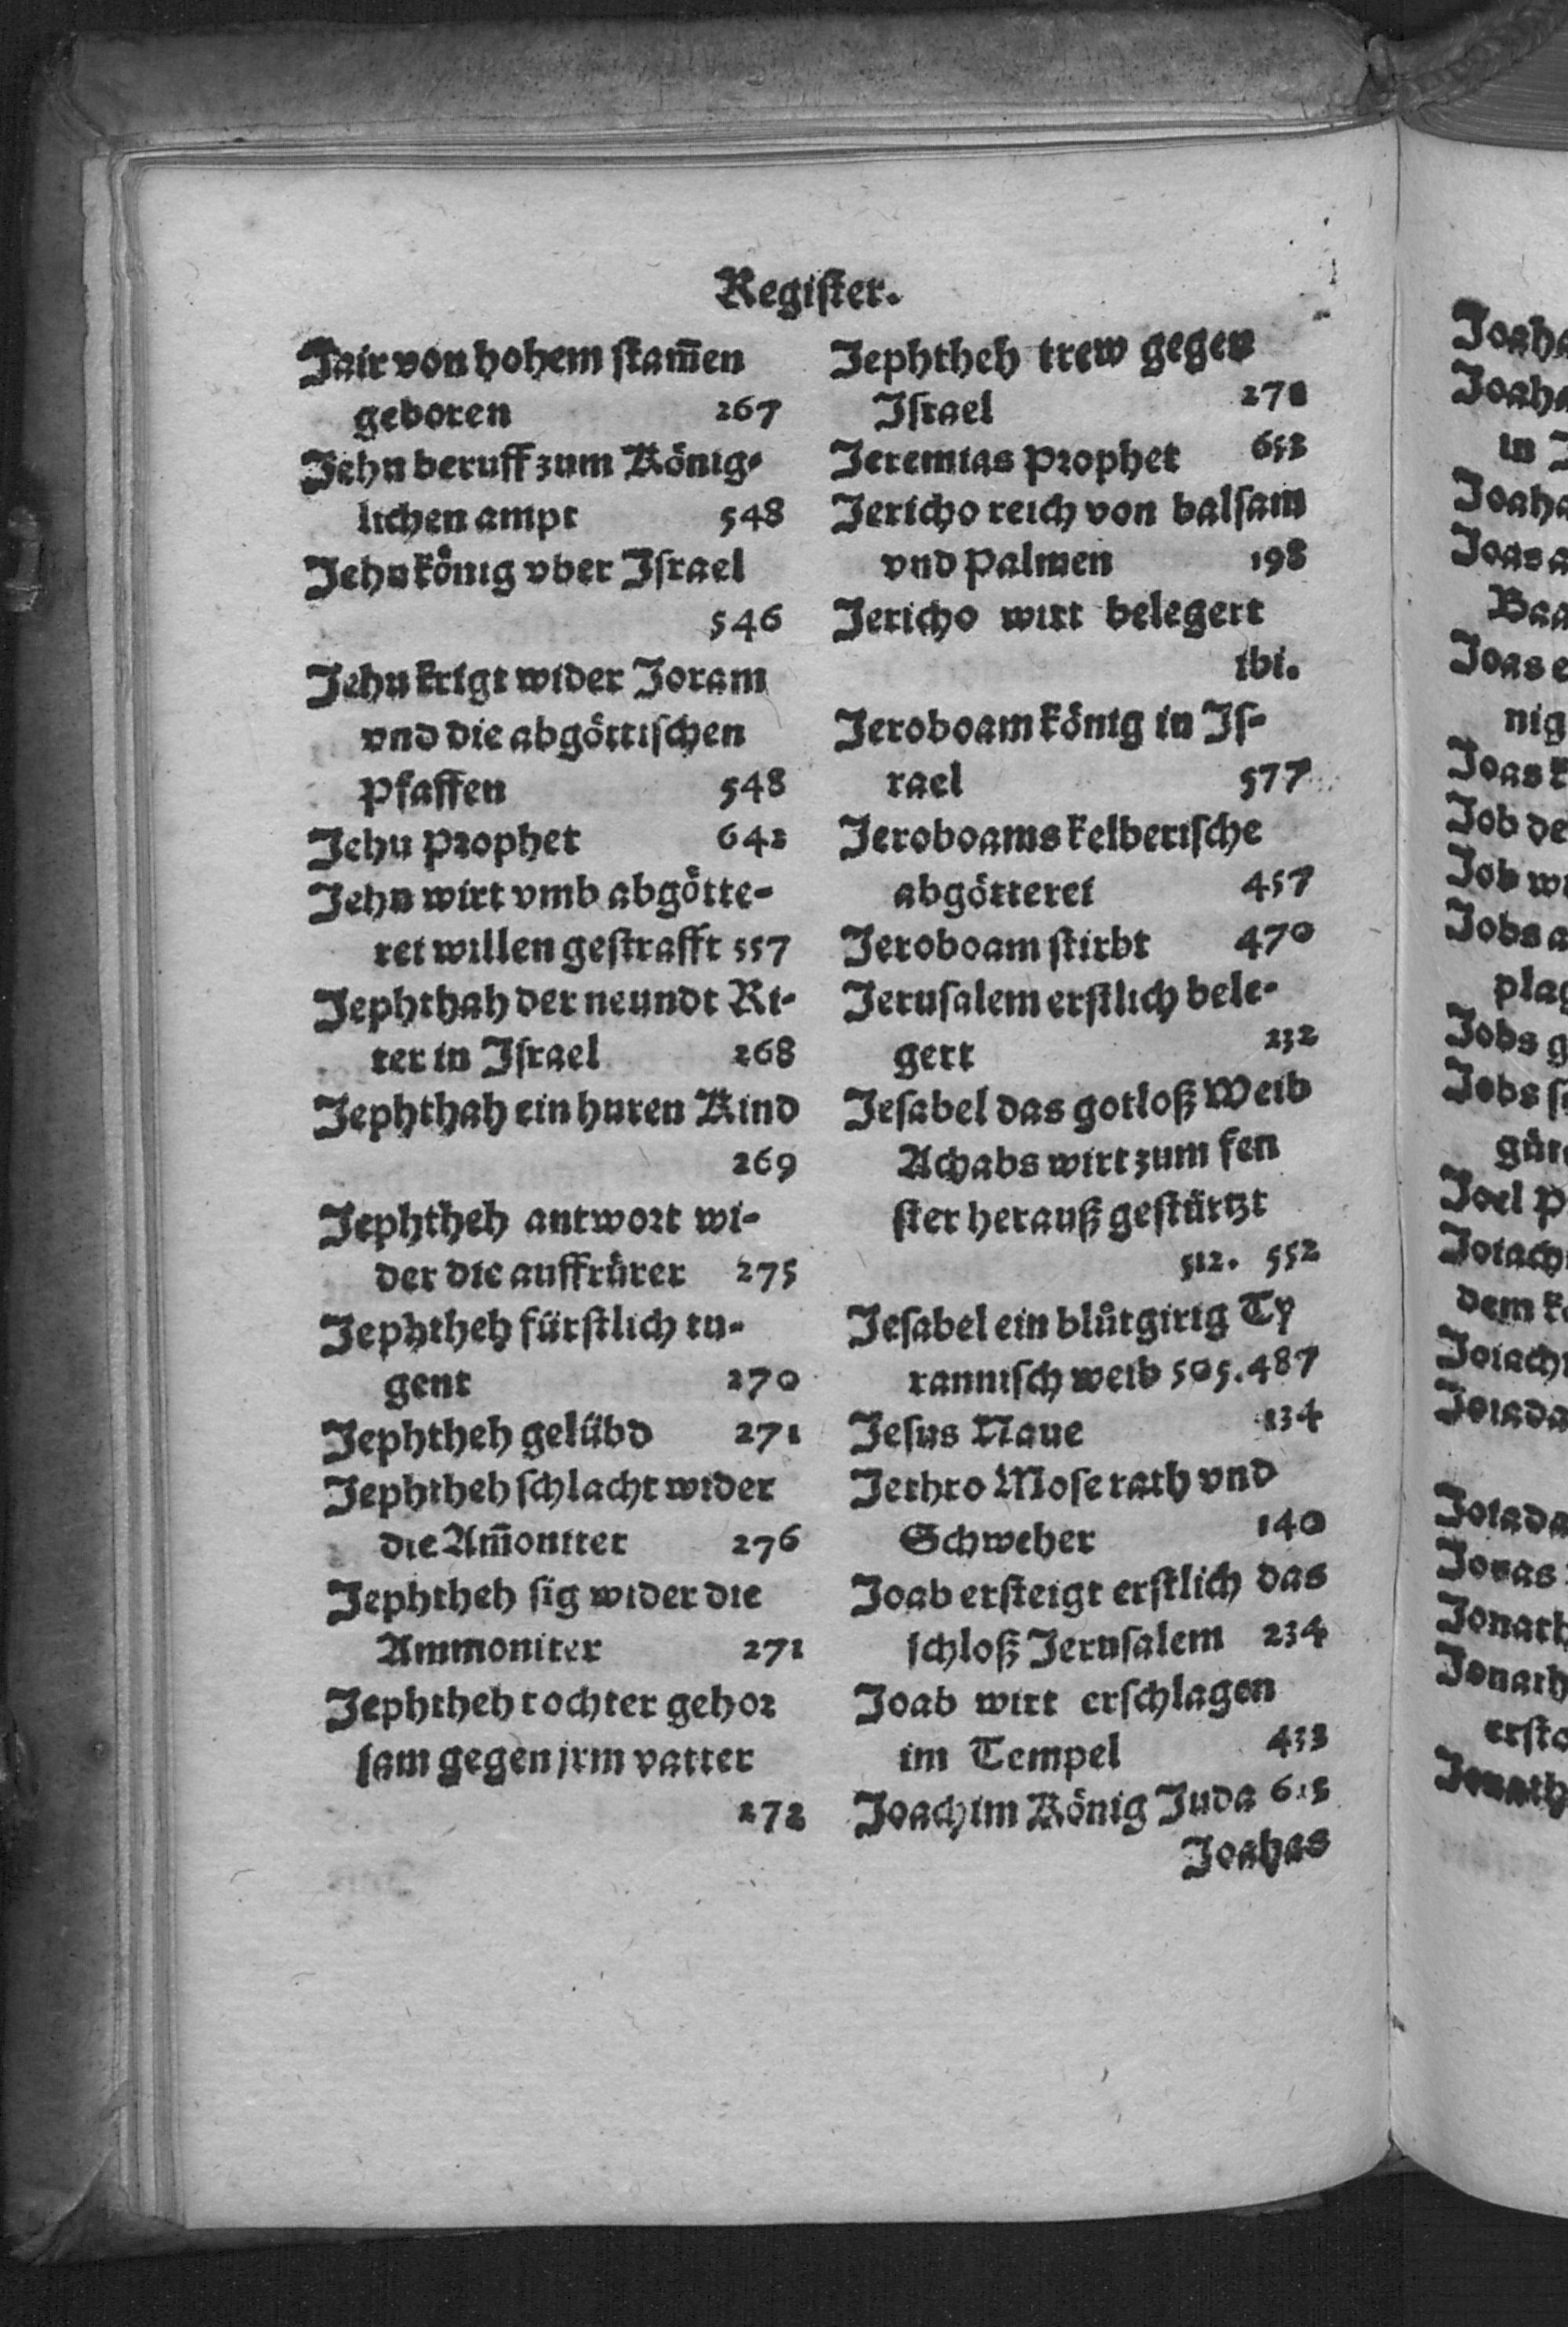 Register.
Jair von hohem stam̃en
geboren 267
Jehu beruff zum König-
lichen ampt 548
Jehu koͤnig vber Israel
546
Jehu krigt wider Joram
vnd die abgöttischen
Pfaffen 548
Jehu Prophet 642
Jehu wirt vmb abgötte-
rei willen gestrafft 557
Jephthah der neundt Ri-
ter in Israel 268
Jephthah ein huren Kind
269
Jephtheh antwort wi-
der die auffrürer 275
Jephtheh fürstlich tu-
gent 270
Jephtheh gelübd 271
Jephtheh schlacht wider
die Am̃oniter 276
Jephtheh sig wider die
Ammoniter 271
Jephtheh tochter gehor
sam gegen jrm vatter
272
Jephtheh trew gegen
Israel
Jeremias Prophet
Jericho reich von balsam
vnd Palmen 198
Jericho wirt belegert
ibi.
Jeroboam könig in Is-
rael 577
Jeroboams kelberische
abgötterei 457
Jeroboam stirbt 470
Jerusalem erstlich bele-
gert 232
Jesabel das gotloß Weib
Achabs wirt zum fen
ster herauß gestürtzt
512. 552
Jesabel ein blůtgirig Ty
rannisch weib 505.487
Jesus Naue
Jethro Mose rath vnd
Schweher 140
Joab ersteigt erstlich das
schloß Jerusalem 234
Joab wirt erschlagen
im Tempel 433
Joachim König Juda
Joahas